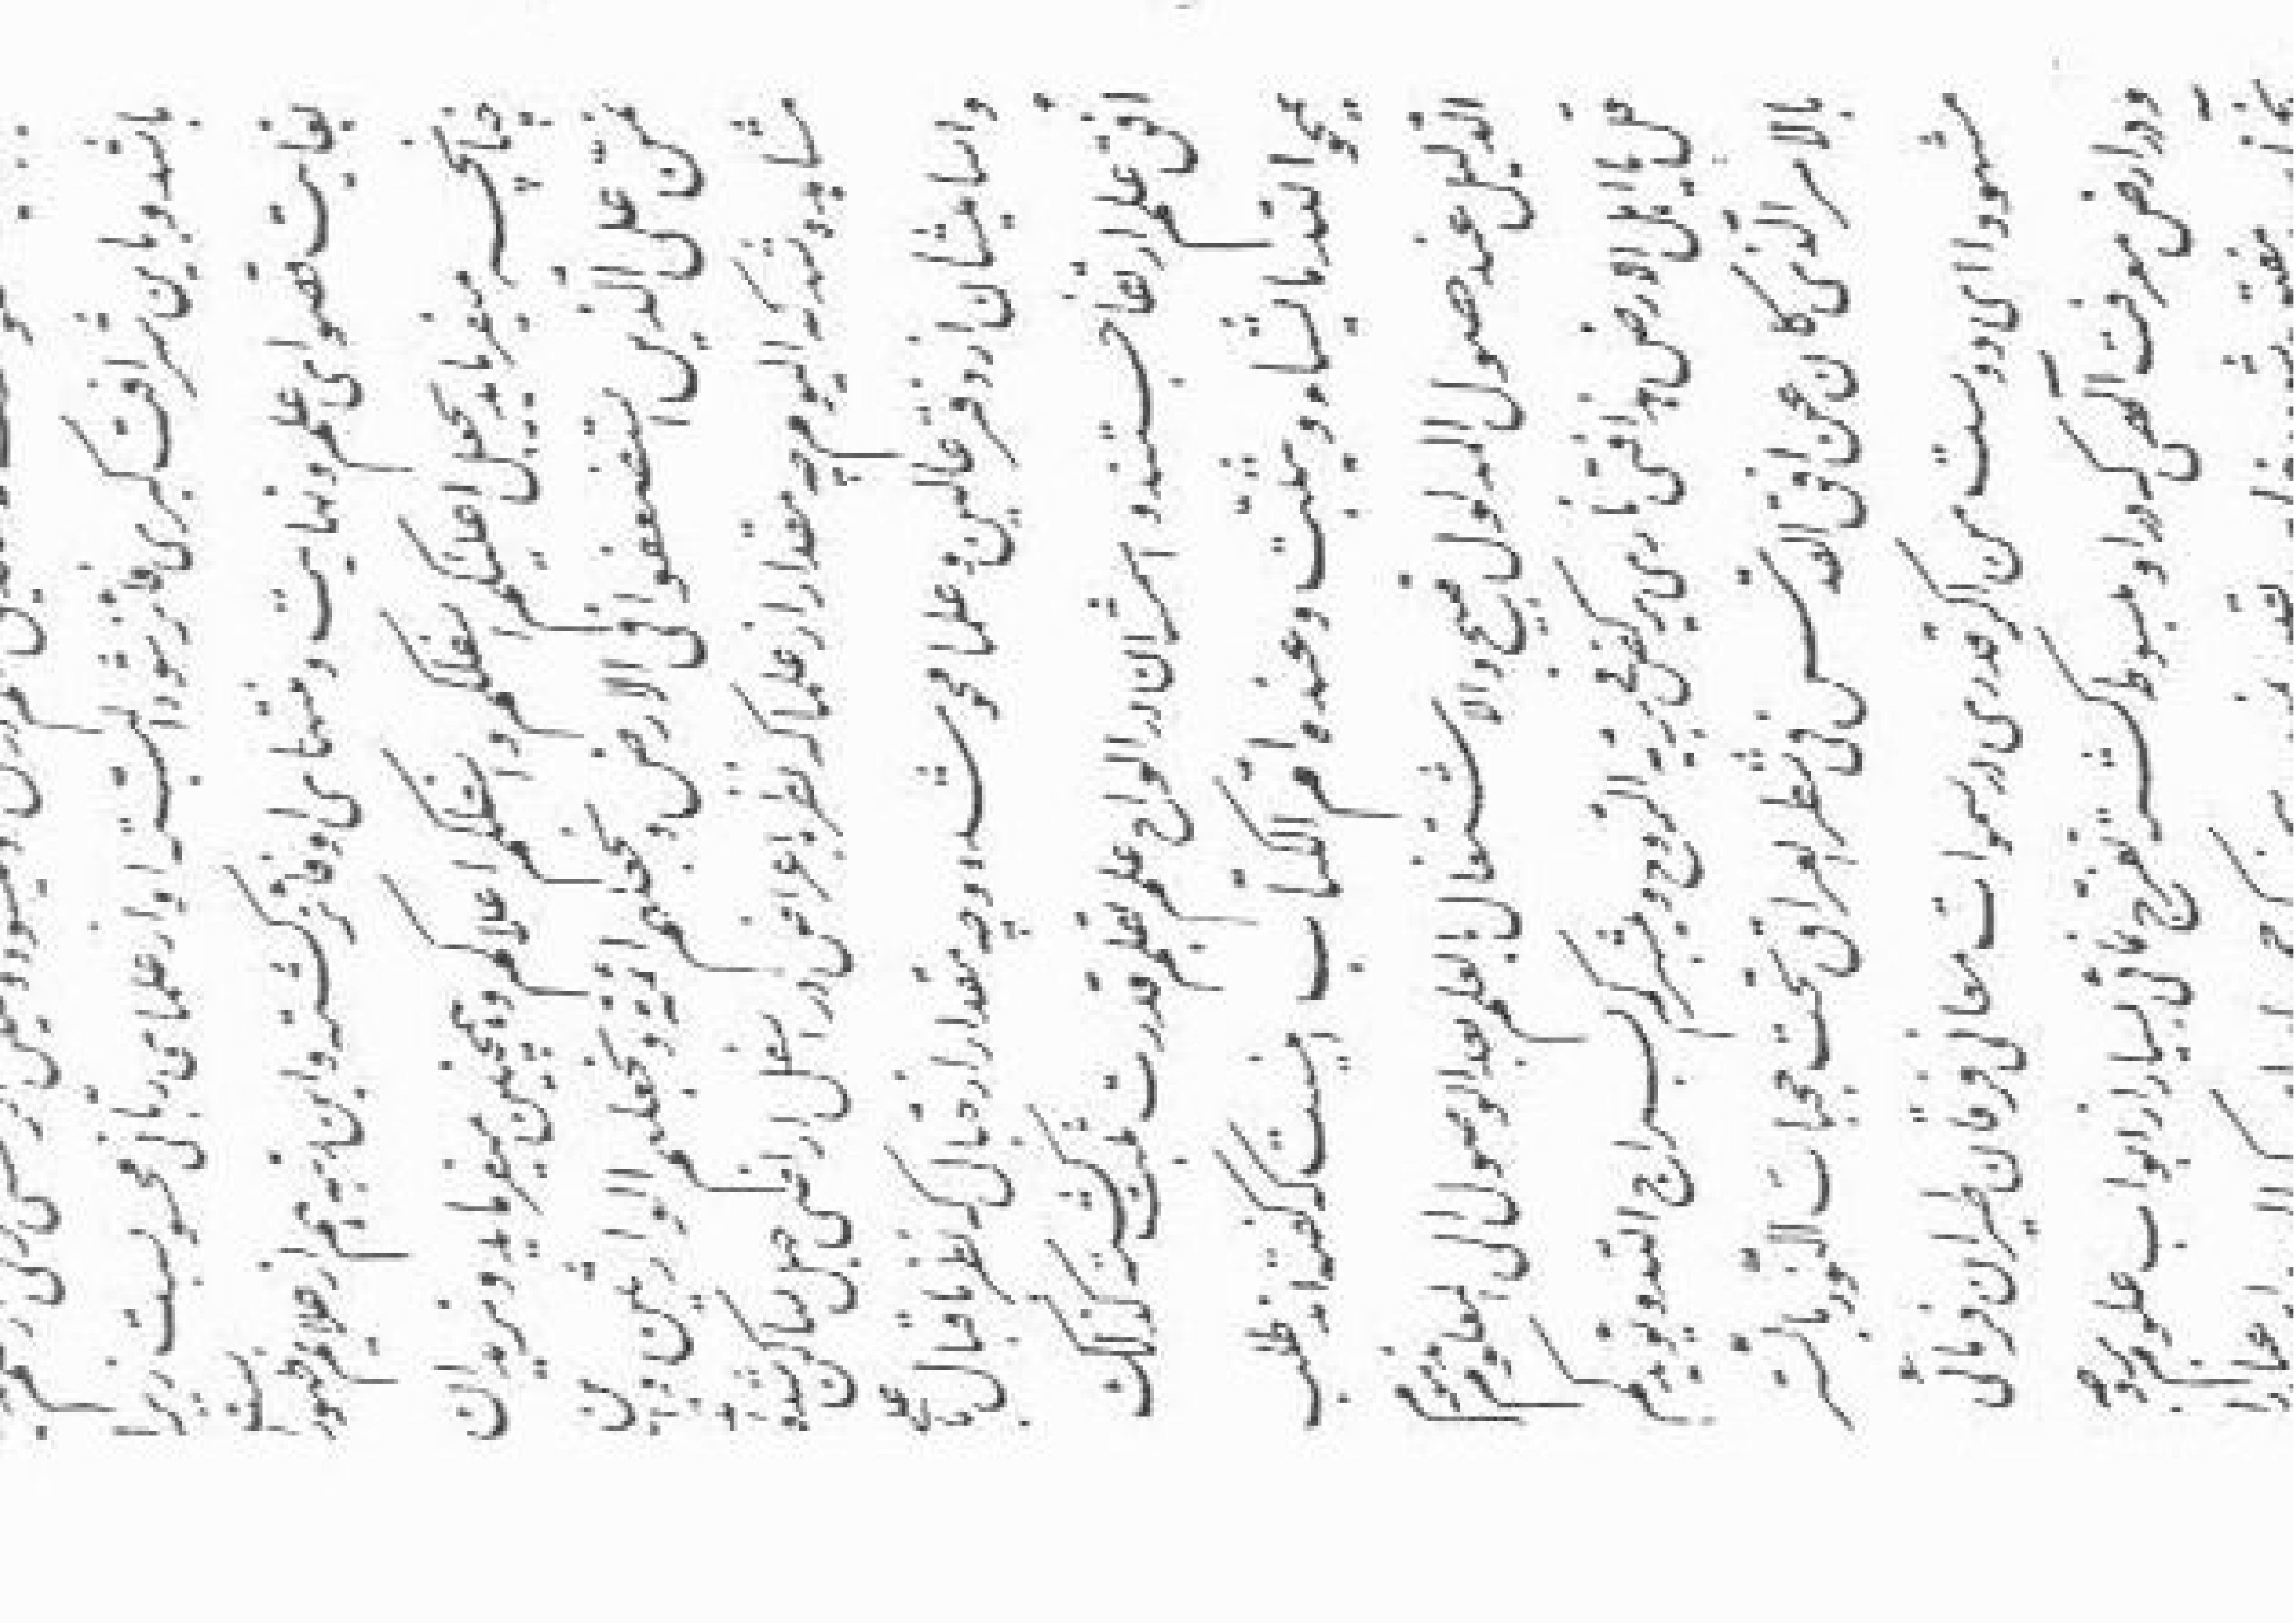 باشد و باین شرافت کبری فائز شود البته او از علمای ربانی محسوبست زیرا
بغایت قصوای علم و نهایت و منتهای او فائز گشته و این رتبه هم از علائم ظهور است
چنانچه میفرماید یجعل اعلیکم اسفلکم و اسفلکم اعلاکم و همچنین میفرماید و نرید ان
نمن علی الذین استضعفوا فی الارض و نجعلهم ائمة و نجعلهم الوارثین و این
مشاهده شد که الیوم چه مقدار از علما که نظر باعراض در اسفل اراضی جهل ساکن شدند
و اسامیشان از دفتر عالین و علما محو شد و چه مقدار از جهال که نظر باقبال باعلی
افق علم ارتقا جستند و اسمشان در الواح علم بقلم قدرت ثبت گشت کذلک
یمحو الله ما یشاء و یثبت و عنده ام الکتاب اینست که گفته اند طلب
الدلیل عند حصول المدلول قبیح و الاشتغال بالعلم بعد الوصول الی المعلوم مذموم
قل یا اهل الارض هذا فتی ناری یرکض فی بریة الروح و یبشرکم بسراج الله و یذکرکم
بالامر الذی کان عن افق القدس فی شطر العراق تحت حجبات النور بالستر
مشهودا ای دوست من اگر قدری در سموات معانی فرقان طیران فرمائی
و در ارض معرفت الهی که در او مبسوط گشته تفرج نمائی بسیار از ابواب علوم بر وجه